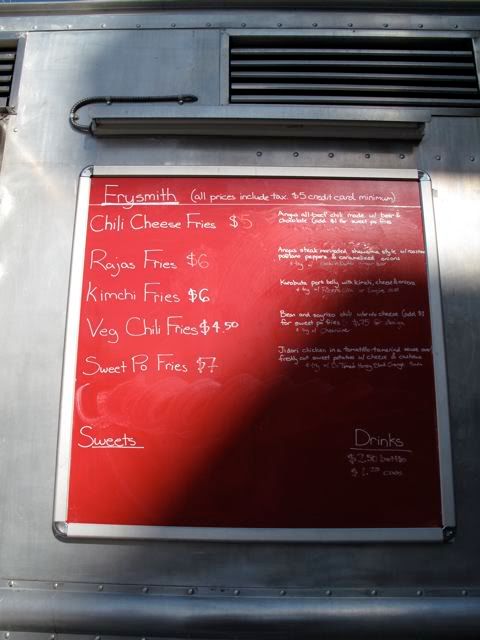 Frysmith (all prices include tax. $5 credit card minimum)
Chili Cheese Fries $5
Angus all-beef chili made w/ beer &
chocolate (add $1 for sweet po fries
Rajas Fries $6
Angus steak marinated shawarma style w/ roasted
poblano peppers & caramelized onions
Kimchi Fries $6
Kurobuta pork belly with kimchi, cheese & onions
Veg Chili Fries $4.50
Bean and soyrizo chili cheese (add $1
for sweet po fries
Sweet Po Fries $7
Jidori chicken in a tomatillo-tamarind sauce over
freshly cut sweet potatoes w/ cheese & cashews
Sweets
Drinks
$2.50 bottle
$1.25 cans